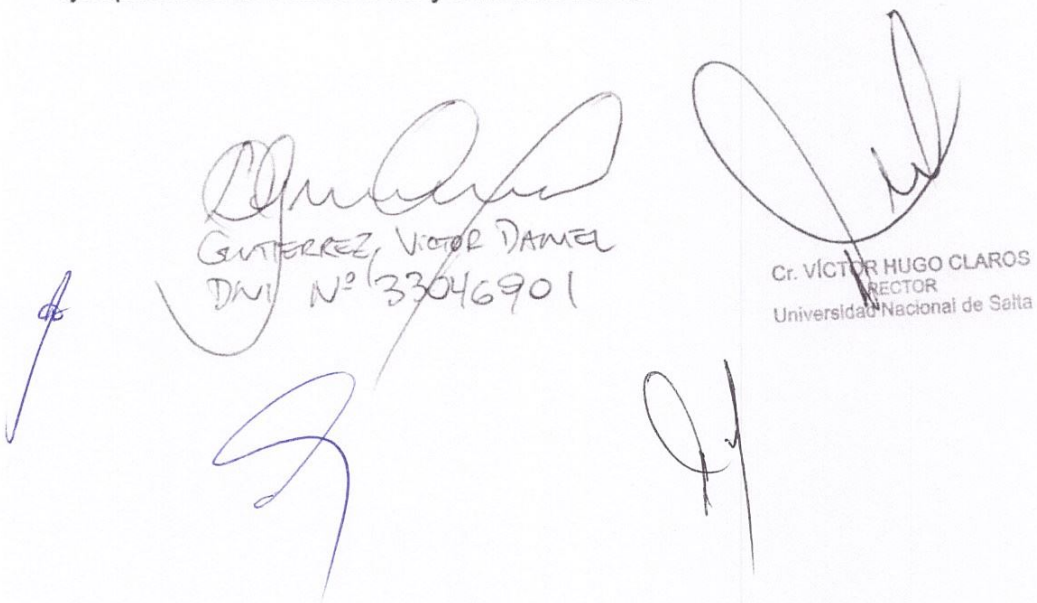 GUTIERREZ, VICTOR DANIEL
DNI Nº 33046901
Cr. VÍCTOR HUGO CLAROS
RECTOR
Universidad Nacional de Salta